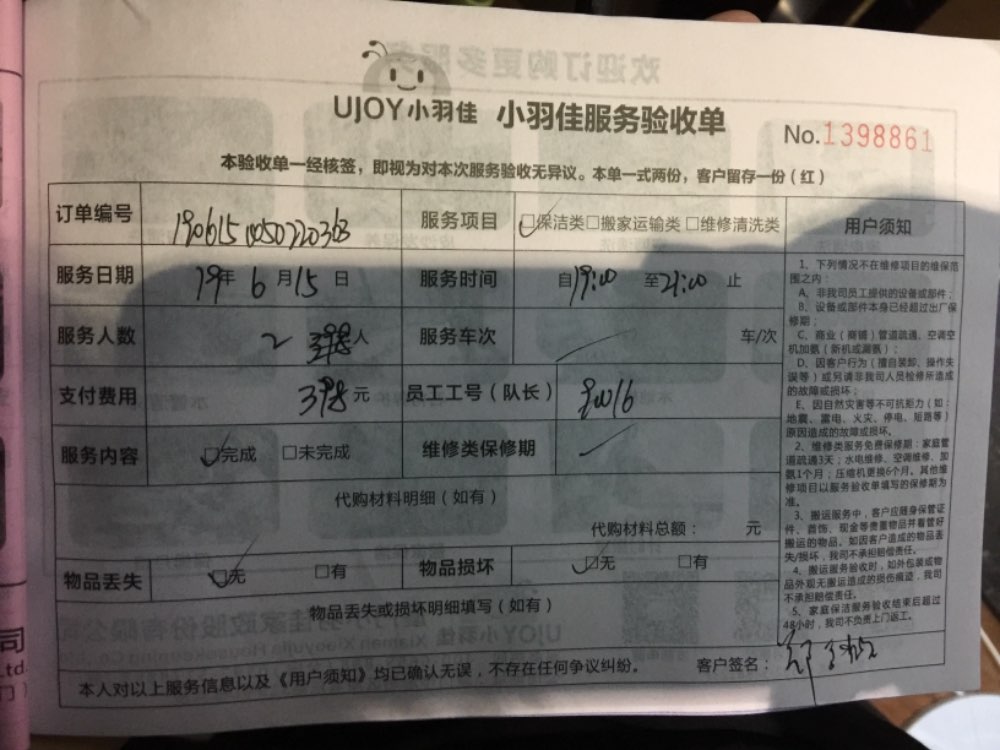 欢迎订购更多服务
UJOY小羽佳 小羽佳服务验收单
No.1398861
本验收单一经核签，即视为对本次服务验收无异议。本单一式两份，客户留存一份（红）
订单编号 190615 0050220363 服务项目 ☑保洁类□搬家运输类□维修清洗类
服务日期 19年 6月15日 服务时间 自19:00 至21:00 止
服务人数 2 人 服务车次 车/次
支付费用 398元 员工工号（队长）
服务内容 ☑完成 □未完成 维修类保修期
代购材料明细（如有）
代购材料总额： 元
物品丢失 ☑无 □有 物品损坏 ☑无 □有
物品丢失或损坏明细填写（如有）
本人对以上服务信息以及《用户须知》均已确认无误，不存在任何争议纠纷。 客户签名：
用户须知
1、下列情况不在维修项目的维保范
围之内：
A、非我司员工提供的设备或部件；
B、设备或部件本身已经超过出厂保
修期；
C、商业（商铺）管道疏通、空调空
机加氨（新机或漏氨）；
D、因客户行为（擅自装卸、操作失
误等）或另请非我司人员检修所造成
的故障或损坏；
E、因自然灾害等不可抗拒力（如：
地震、雷电、火灾、停电、短路等）
原因造成的故障或损坏。
2、维修类服务免费保修期：家庭管
道疏通3天；水电维修、空调维修、加
氨1个月；压缩机更换6个月。其他维
修项目以服务验收单填写的保修期为
准。
3、搬运服务中，客户应随身保管证
件、首饰、现金等贵重物品并看管好
搬运的物品。如因客户造成的物品丢
失/损坏，我司不承担赔偿责任。
4、搬运服务验收时，如外包装或物
品外观无搬运造成的损伤痕迹，我司
不承担赔偿责任。
5、家庭保洁服务验收结束后超过
48小时，我司不负责上门返工。
司
Ltd
门）